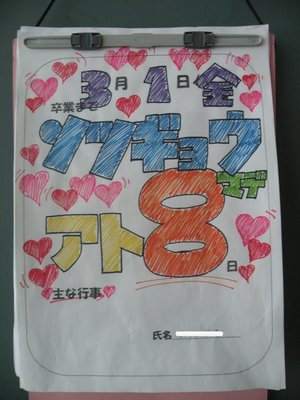 3月1日金
卒業まで
ソツギョウ
マデ
アト8日
主な行事
氏名